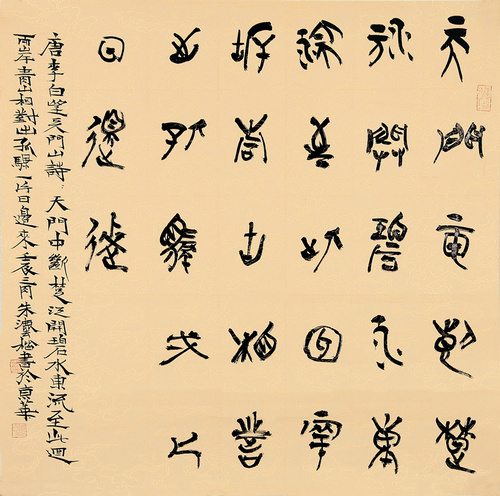 天門中斷楚
江開碧水東
流至此回兩
岸青山相對
出孤颿一片
日邊來
唐李白望天門山詩:天門中斷楚江開碧水東流至此迴
兩岸青山相對出孤颿一片日邊來壬辰三月朱書於京華